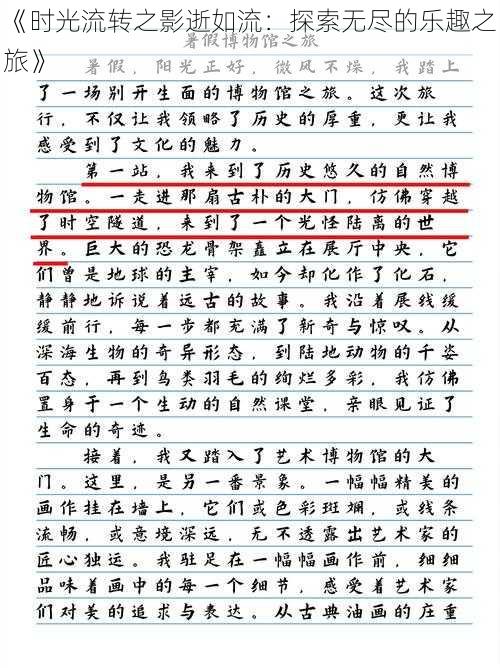 《时光流转之影逝如流：探索无尽的乐趣之
旅》
暑假博物馆之旅
暑假，阳光正好，微风不燥，我踏上
了一场别开生面的博物馆之旅。这次旅
行，不仅让我领略了历史的厚重，更让我
感受到了文化的魅力。
第一站，我来到了历史悠久的自然博
物馆。一走进那扇古朴的大门，仿佛穿越
了时空隧道，来到了一个光怪陆离的世
界。巨大的恐龙骨架矗立在展厅中央，它
们曾是地球的主宰，如今却化作了化石，
静静地诉说着远古的故事。我沿着展线缓
缓前行，每一步都充满了新奇与惊叹。从
深海生物的奇异形态，到陆地动物的千姿
百态，再到鸟类羽毛的绚烂多彩，我仿佛
置身于一个生动的自然课堂，亲眼见证了
生命的奇迹。
接着，我又踏入了艺术博物馆的大
门。这里，是另一番景象。一幅幅精美的
画作挂在墙上，它们或色彩斑斓，或线条
流畅，或意境深远，无不透露出艺术家的
匠心独运。我驻足在一幅幅画作前，细细
品味着画中的每一个细节，感受着艺术家
们对美的追求与表达。从古典油画的庄重